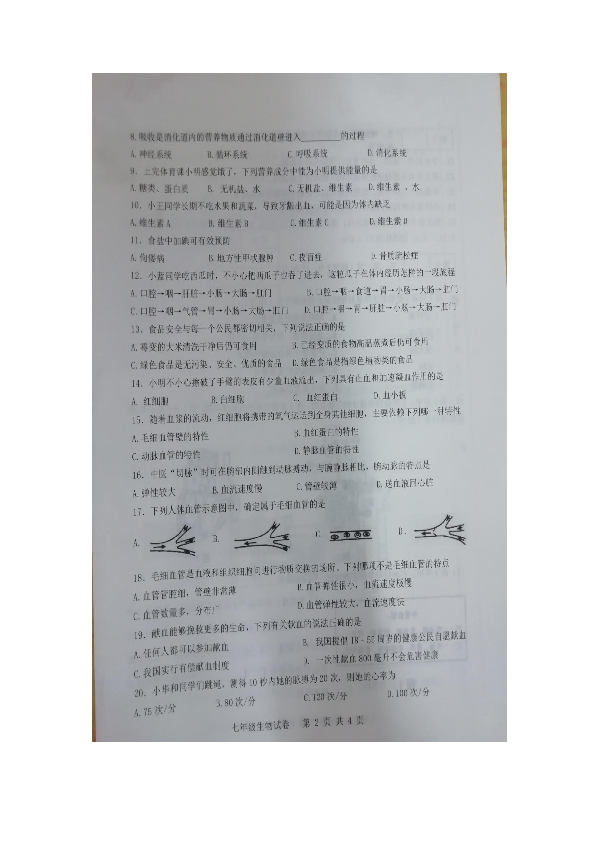 8.吸收是消化道内的营养物质通过消化道壁进入________的过程
A.神经系统 B.循环系统 C.呼吸系统 D.消化系统
9. 上完体育课小明感觉饿了，下列营养成分中能为小明提供能量的是
A.糖类、蛋白质 B. 无机盐、水 C.无机盐、维生素 D.维生素 、水
10. 小王同学长期不吃水果和蔬菜，导致牙龈出血，可能是因为体内缺乏
A.维生素 A B.维生素 B C.维生素 C D.维生素 D
11. 食盐中加碘可有效预防
A.佝偻病 B.地方性甲状腺肿 C.夜盲症 D.骨质疏松症
12. 小蓝同学吃西瓜时，不小心把两瓜子也吞了进去，这粒瓜子在体内经历怎样的一段旅程
A.口腔→咽→肝脏→小肠→大肠→肛门 B.口腔→咽→食道→胃→小肠→大肠→肛门
C.口腔→咽→气管→胃→小肠→大肠→肛门 D.口腔→咽→胃→肝脏→小肠→大肠→肛门
13. 食品安全与每一个公民都密切相关，下列说法正确的是
A.霉变的大米清洗干净后仍可食用 B.已经变质的食物高温蒸煮后仍可食用
C.绿色食品是无污染、安全、优质的食品 D.绿色食品是指绿色植物类的食品
14. 小明不小心擦破了手臂的表皮有少量血液流出，下列具有止血和加速凝血作用的是
A. 红细胞 B.白细胞 C. 血红蛋白 D.血小板
15. 随着血浆的流动，红细胞将携带的氧气运送到全身其他细胞，主要依赖下列哪一种特性
A.毛细血管壁的特性 B.血红蛋白的特性
C.动脉血管的特性 D.静脉血管的特性
16. 中医“切脉”时可在腕部内侧触到动脉搏动，与腕静脉相比，腕动脉的特点是
A.弹性较大 B.血流速度慢 C.管壁较薄 D.送血液回心脏
17. 下列人体血管示意图中，确定属于毛细血管的是
A. B. C. D.
18. 毛细血管是血液和组织细胞间进行物质交换的场所。下列哪项不是毛细血管的特点
A.血管管腔细，管壁非常薄 B.血管弹性很小，血流速度极慢
C.血管数量多，分布广 D.血管弹性较大，血流速度快
19. 献血能够挽救更多的生命，下列有关献血的说法正确的是
A.任何人都可以参加献血 B. 我国提倡 18﹣55 周岁的健康公民自愿献血
C.我国实行有偿献血制度 D. 一次性献血 800 毫升不会危害健康
20. 小华和同学们跳绳，测得 10 秒内她的脉搏为 20 次，则她的心率为
A.75 次/分 B.80 次/分 C.120 次/分 D.100 次/分
七年级生物试卷 第 2 页 共 4 页